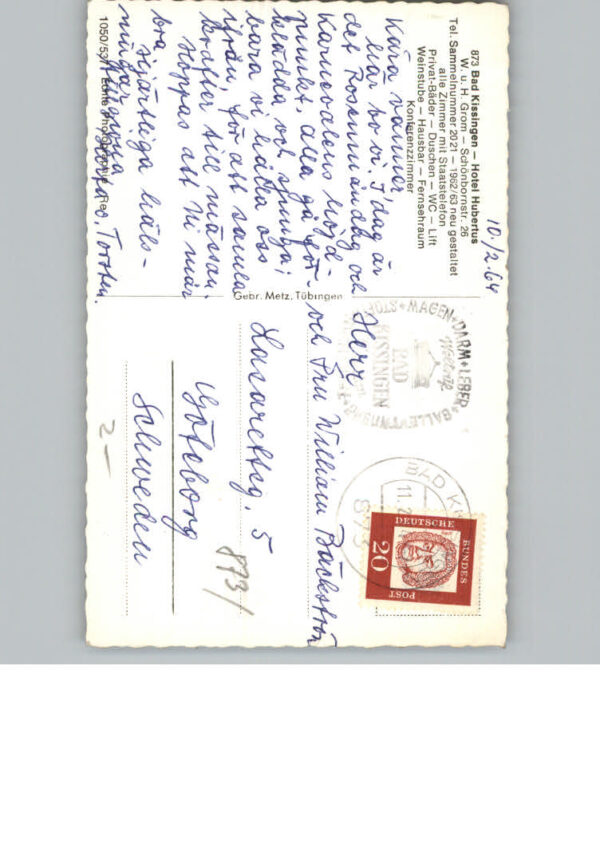 873 Bad Kissingen – Hotel Hubertus
W. u. H. Grom – Schönbornstr. 26
Tel. Sammelnummer 2021 – 1962/63 neu gestaltet
alle Zimmer mit Staatstelefon
Privat-Bäder – Duschen – WC – Lift
Weinstube – Hausbar – Fernsehraum
Konferenzzimmer
10./2.64
Kära vänner
Här bo vi. I dag är
det Rosenmondag och
Karnevalens höjd-
punkt, alla gå
klädda och springa,
bara vi hålla oss
ifrån, för att samla
krafter till
Hoppas att Ni mår
bra
Hjärtliga häls-
ningar
Torsten.
1050/537 Echte Photographie
Gebr. Metz, Tübingen
MAGEN+DARM+LEBER
BAD
KISSINGEN
BAD
11.2
873
DEUTSCHE
BUNDES
POST
20
Herr
och Fru William Bäckström
Lasarettsg. 5
Göteborg
Schweden
873/
2-